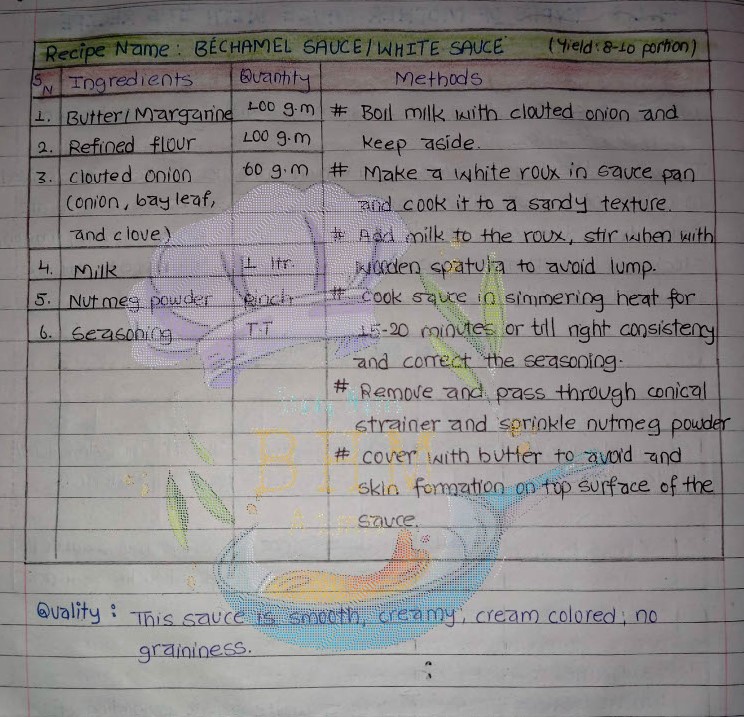 Recipe Name: BÉCHAMEL SAUCE/WHITE SAUCE (Yield: 8-10 portion)
SN Ingredients Quantity Methods
1. Butter/Margarine 100 g.m # Boil milk with clouted onion and
2. Refined flour 100 g.m keep aside.
3. clouted onion 60 g.m # Make a white roux in sauce pan
(onion, bay leaf, and cook it to a sandy texture.
and clove) # Add milk to the roux, stir when with
4. Milk 1 ltr. wooden spatula to avoid lump.
5. Nutmeg powder pinch # cook sauce in simmering heat for
6. seasoning T.T 15-20 minutes or till right consistency
and correct the seasoning.
# Remove and pass through conical
strainer and sprinkle nutmeg powder
# cover with butter to avoid and
skin formation on top surface of the
sauce.
BHM
Quality: This sauce is smooth, creamy, cream colored, no
graininess.